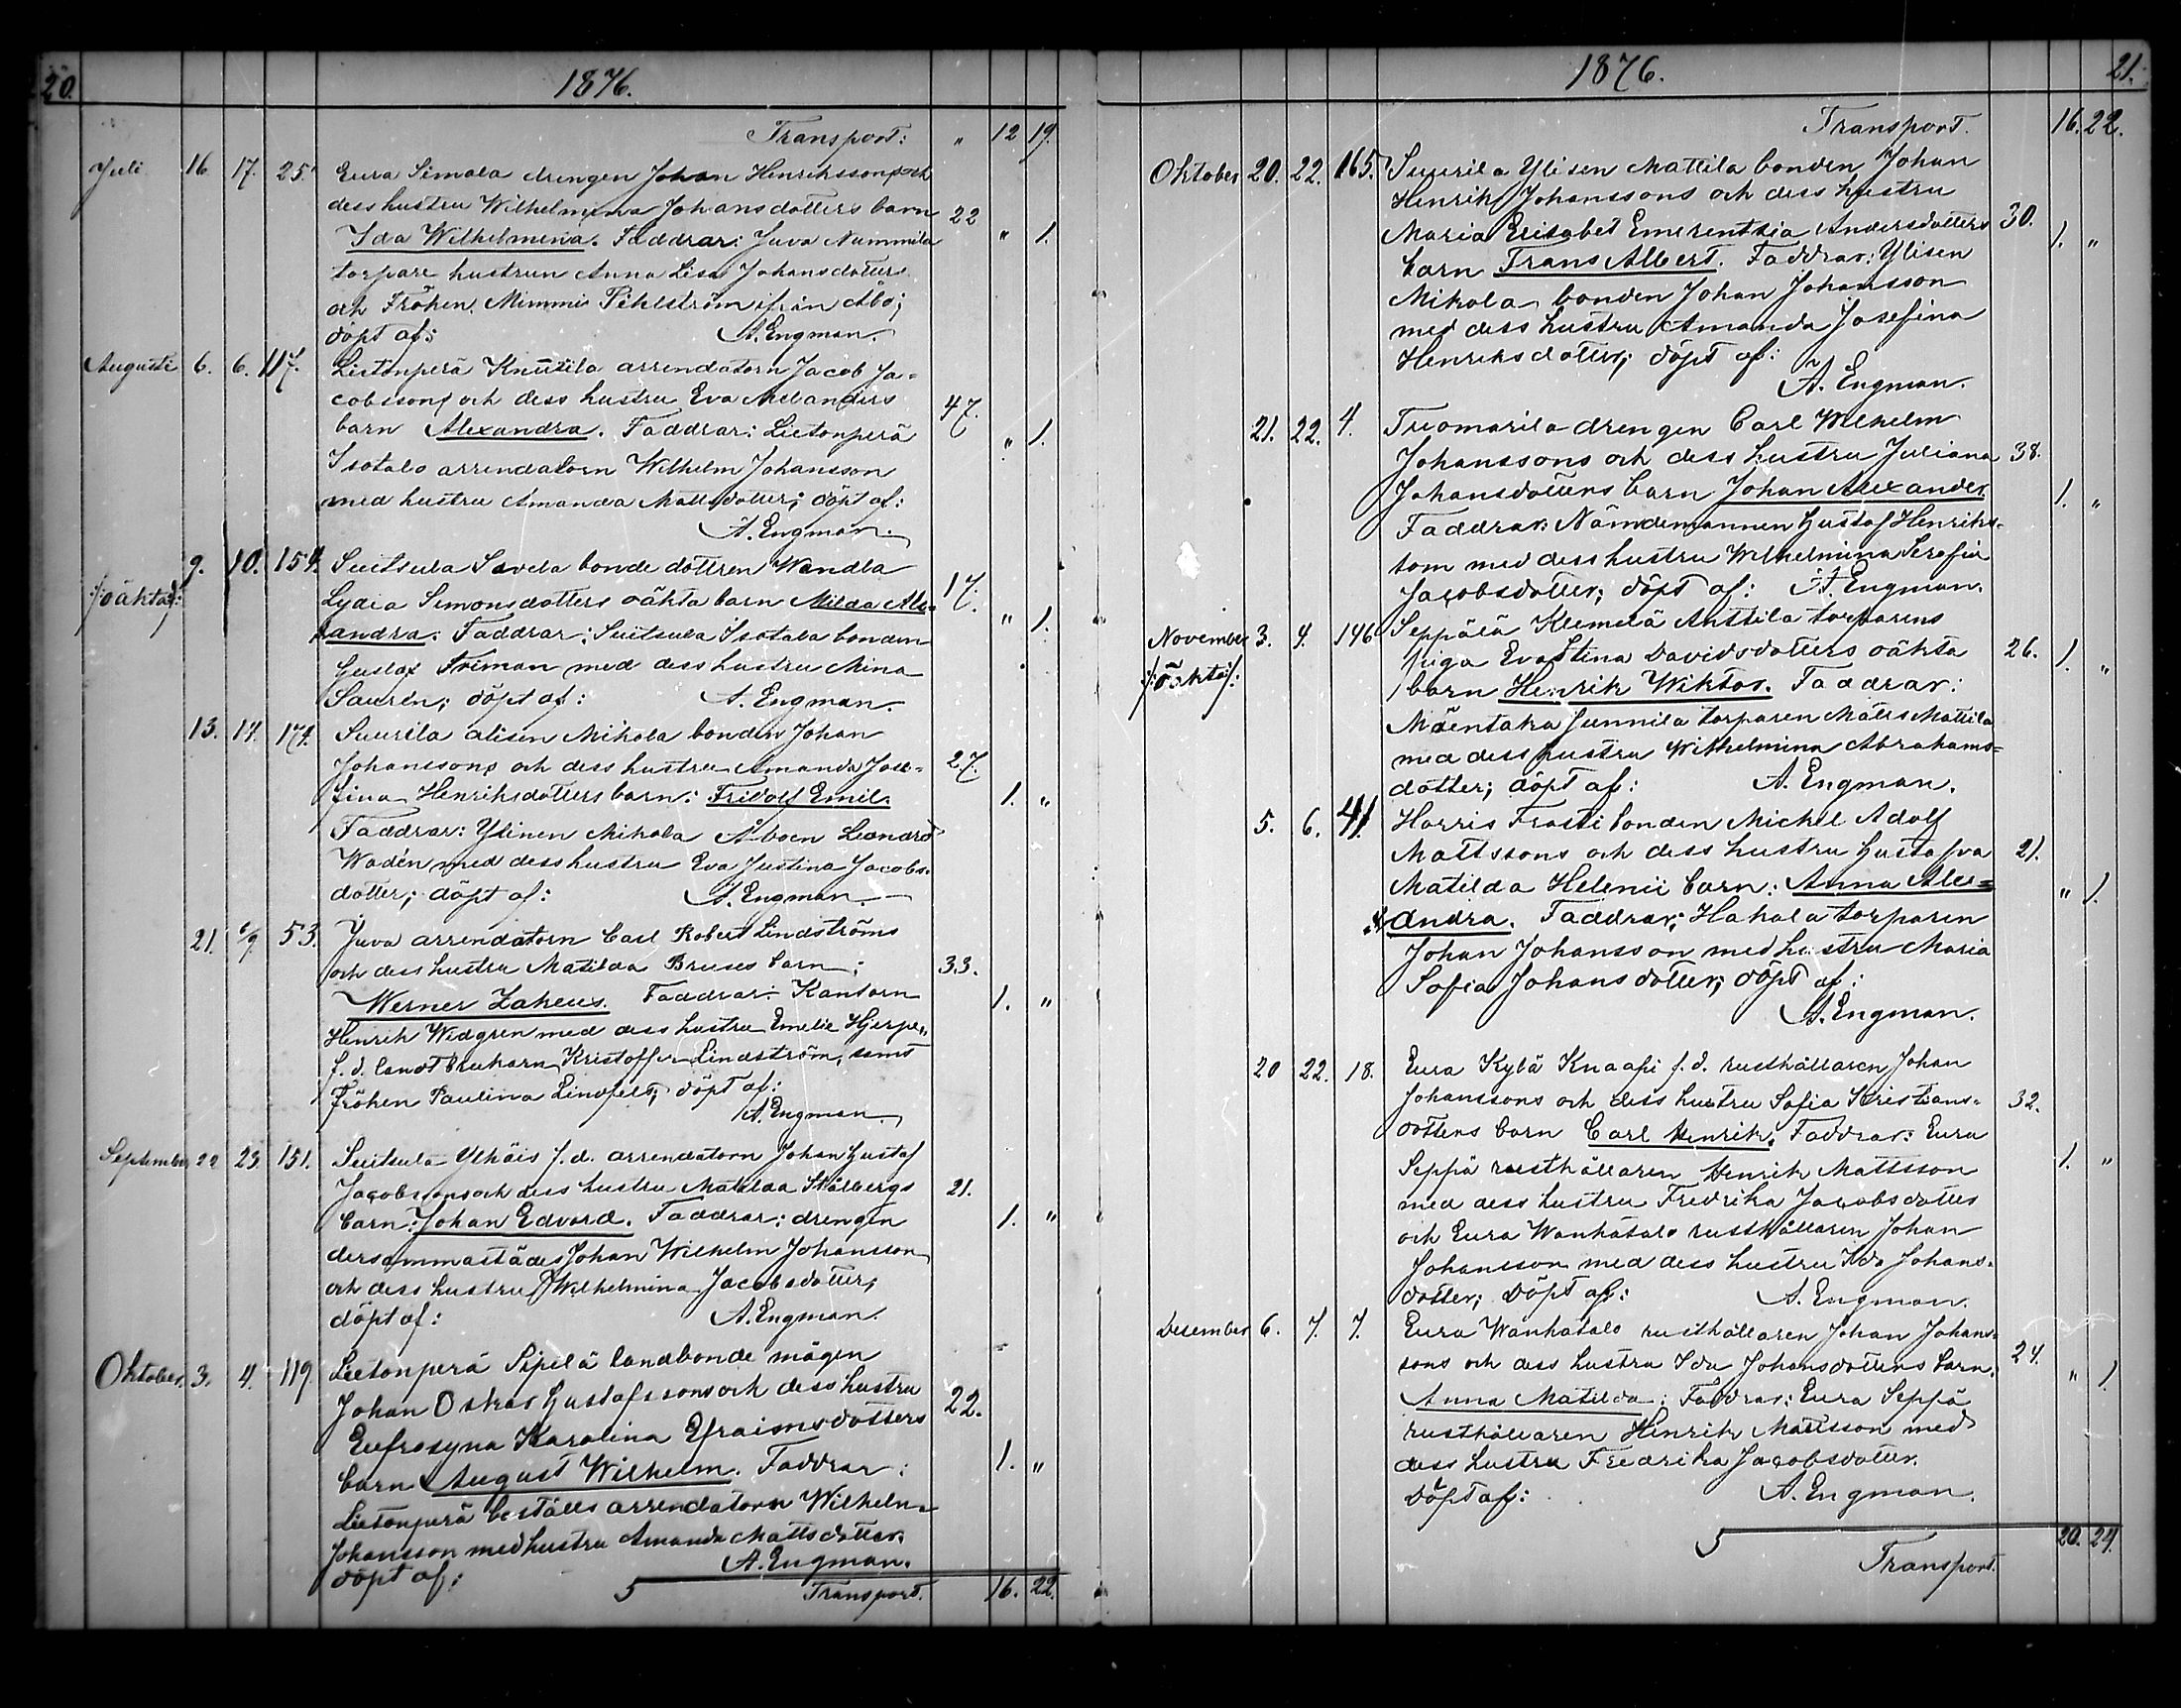 20.
1876.
Transport: " 12 19.
Juli 16. 17. 25. Eura Simola drengen Johan Henrikssons och
dess hustru Wilhelmina Johansdotters barn 22
Ida Wilhelmina. Faddrar: Juva Nummila " 1.
torpare hustrun Anna Lisa Johansdotter
och Fröken Mimmi Pihlström ifrån Åbo;
döpt af: A. Engman.
Augusti 6. 6. 117. Lietonperä Knuutila arrendatorn Jacob Ja-
cobssons och dess hustru Eva Melanders 47.
barn Alexandra. Faddrar: Lietonperä " 1.
Isotalo arrendatorn Wilhelm Johansson
med hustru Amanda Mattsdotter; döpt af:
A. Engman.
9. 10. 154. Suitsula Savela bonde dottren Wendla
/:oäkta:/ Lydia Simonsdotters oäkta barn Milda Alex- 17.
andra. Faddrar: Suitsula Isotalo bonden " 1.
Gustaf Friman med dess hustru Mina
Saurén; döpt af: A. Engman.
13. 14. 174. Suurila alisen Mikola bonden Johan
Johanssons och dess hustru Amanda Jose- 27.
fina Henriksdotters barn: Fridolf Emil. 1. "
Faddrar: Ylinen Mikola Åboen Leandro
Wadén med dess hustru Eva Justina Jacobs-
dotter; döpt af: A. Engman.
21. 6/9 53. Juva arrendatorn Carl Robert Lindströms
och dess hustru Matilda Bruses barn: 33.
Werner Zakeus. Faddrar: Kantorn 1. "
Henrik Widgren med dess hustru Emelie Hjerpe,
f. d. landtbrukarn Kristoffer Lindström, samt
Fröken Paulina Lindfelt; döpt af:
A. Engman.
September 22 23. 151. Suitsula Ylhäis f.d. arrendatorn Johan Gustaf
Jacobssons och dess hustru Matilda Stålbergs 21.
barn: Johan Edvard. Faddrar: drengen 1. "
dersammastädes Johan Wilhelm Johansson
och dess hustru Wilhelmina Jacobsdotter;
döpt af: A. Engman.
Oktober. 3. 4. 119. Lietonperä Pipilä landbonde mågen
Johan Oskar Gustafssons och dess hustru 22.
Eufrosyna Karolina Efraimsdotters
barn August Wilhelm. Faddrar: 1. "
Lietonperä beställs arrendatorn Wilhelm
Johansson med hustru Amanda Mattsdotter.
döpt af: A. Engman.
Transport. 16. 22.
21.
1876.
Transport. 16. 22.
Oktober 20. 22. 165. Suurila Ylisen Mattila bonden Johan
Henrik Johanssons och dess hustru
Maria Elisabet Emerentsia Andersdotters 30.
barn Frans Albert. Faddrar: Ylisen 1. "
Mikola bonden Johan Johansson
med dess hustru Amanda Josefina
Henriksdotter; döpt af:
A. Engman.
21. 22. 4. Tuomarila drengen Carl Wilhelm
Johanssons och dess hustru Juliana 38.
Johansdotters barn Johan Alexander. 1. "
Faddrar: Nämdemannen Gustaf Henriks-
son med dess hustru Wilhelmina Serafia
Jacobsdotter; döpt af: A. Engman.
November 3. 4. 146. Seppälä Klemelä Anttila torparens
/:oäkta:/ piga Eva Stina Davidsdotters oäkta 26. 1. "
barn Henrik Wiktor. Faddrar:
Mäentaka Junnila torparen Matts Mattila
med dess hustru Wilhelmina Abrahams-
dotter; döpt af: A. Engman.
5. 6. 41. Harris Frasti bonden Mickel Adolf
Mattssons och dess hustru Gustafva 21.
Matilda Helenii barn: Anna Alex- " 1.
andra. Faddrar: Hakala torparen
Johan Johansson med hustru Maria
Sofia Johansdotter; döpt af:
A. Engman.
20 22. 18. Eura Kylä Knaapi f.d. rusthållaren Johan
Johanssons och dess hustru Sofia Kristians- 32.
dotters barn Carl Henrik. Faddrar: Eura
Seppä rusthållaren Henrik Mattsson 1. "
med dess hustru Fredrika Jacobsdotter
och Eura Wanhatalo rusthållaren Johan
Johansson med dess hustru Ida Johans-
dotter; döpt af: A. Engman.
Desember 6. 7. 7. Eura Wanhatalo rusthållaren Johan Johans-
sons och dess hustru Ida Johansdotters barn: 24.
Anna Matilda: Faddrar: Eura Seppä " 1.
rusthållaren Henrik Mattsson med
dess hustru Fredrika Jacobsdotter.
döpt af: A. Engman.
20. 24.
Transport.